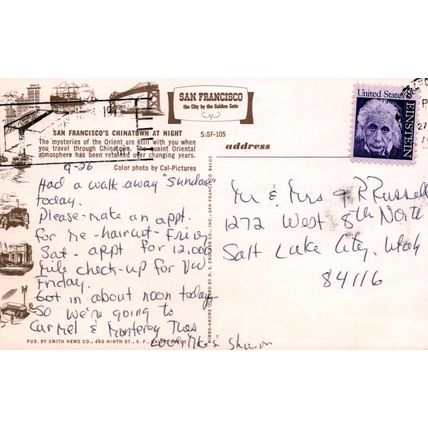 SAN FRANCISCO
the City by the Golden Gate
SAN FRANCISCO'S CHINATOWN AT NIGHT
5:SF-105
The mysteries of the Orient are still with you when
you travel through Chinatown. The quaint Oriental
atmosphere has been retained over changing years.
Color photo by Cal-Pictures
address
United States
EINSTEIN
9-26
Had a walk away Sundae
today.
Please make an appt.
for me - haircut - Friday
Sat - appt for 12,000
mile check-up for VW
Friday.
Got in about noon today
So we're going to
Carmel & Monterey Thurs
Love, Mike & Sharon
Mr & Mrs R Russell
1272 West 8th North
Salt Lake City, Utah
84116
PUB. BY SMITH NEWS CO., 460 NINTH ST., S. F.